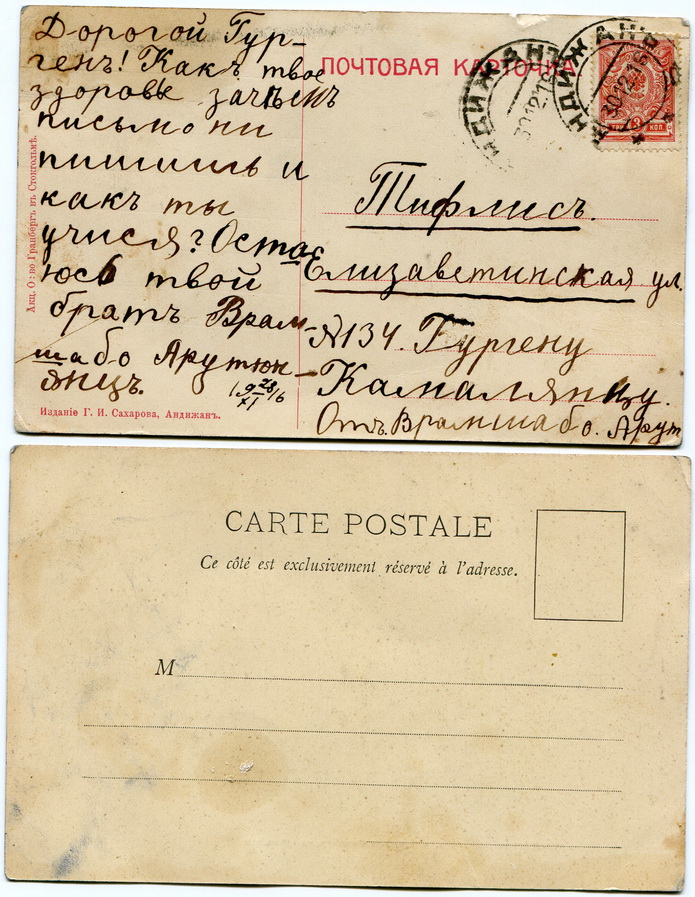 Дорогой Гур-
генъ! Какъ твое
здоровье зачѣмъ
письмо ни
пишишь и
какъ ты
учися? Оста
юсь твой
братъ Врам-
шабо Арутюн-
янцъ.
Издание Г. И. Сахарова, Андижанъ.
Акц. О-во Гранбергъ въ Стокгольмѣ.
ПОЧТОВАЯ КАРТОЧКА
АНДИЖАНЪ
30.12.16
АНДИЖАНЪ
30.12.16
3 КОП.
Тифлисъ.
Елизаветинская ул.
№134. Гургену
Камалянцу.
Отъ. Врамшабо. Арут
CARTE POSTALE
Ce côté est exclusivement réservé à l'adresse.
M